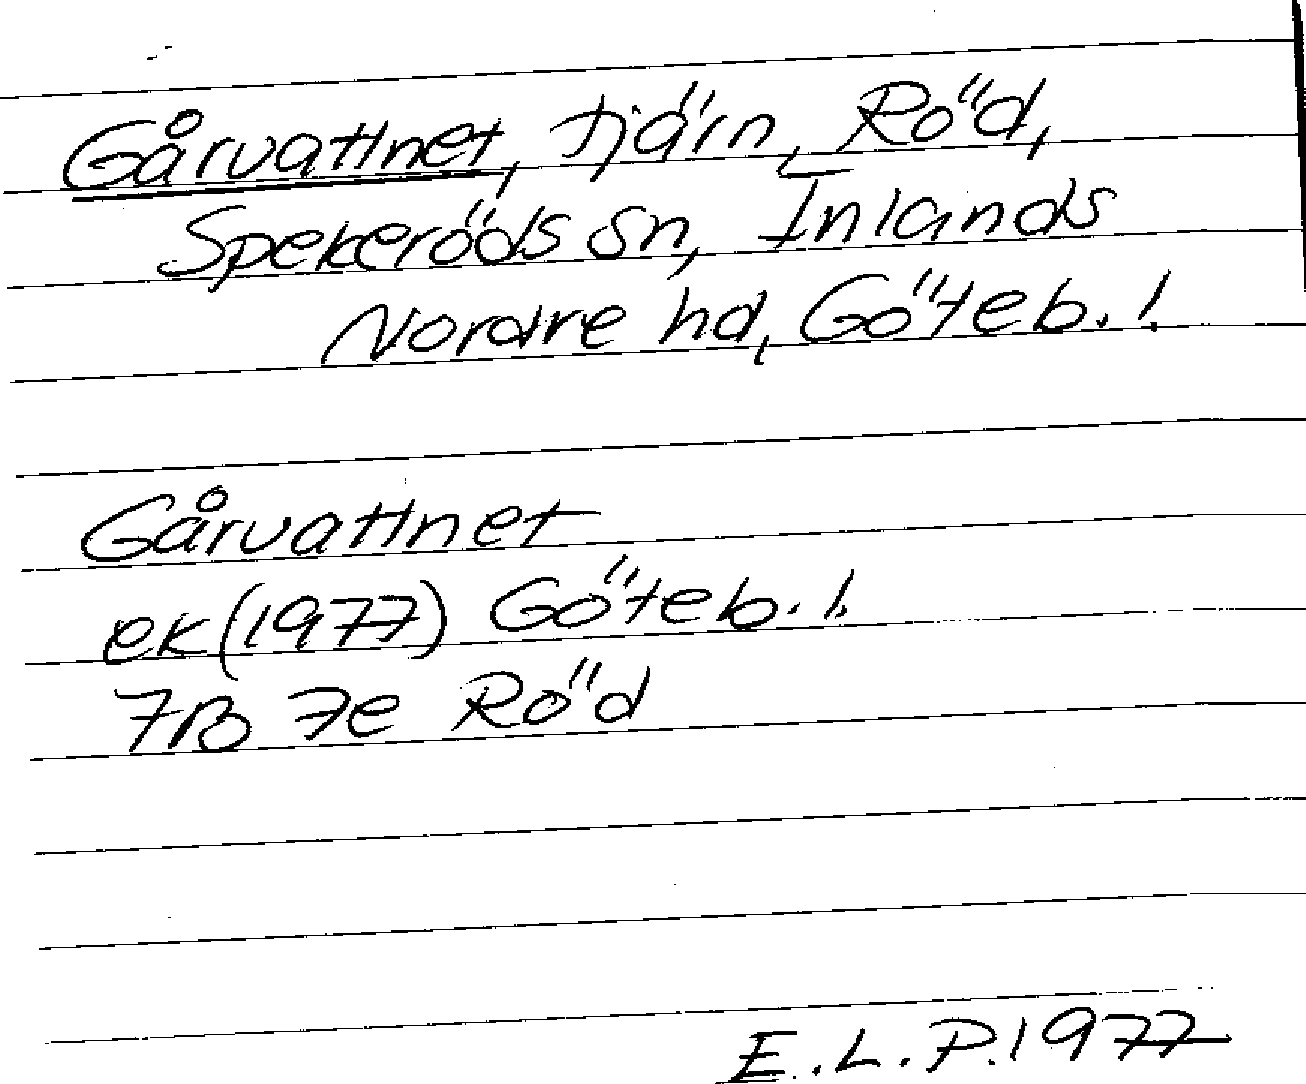 Gårvattnet, tjärn, Röd,
Spekeröds sn, Inlands
Nordre hd, Göteb. l.
Gårvattnet
ek (1977) Göteb. l.
7B 7e Röd
E. L. P. 1977